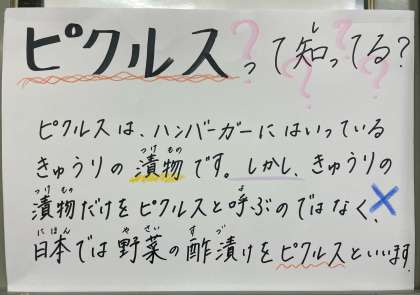 ピクルスって知ってる?
ピクルスは、ハンバーガーにはいっている
きゅうりの漬物です。しかし、きゅうりの
漬物だけをピクルスと呼ぶのではなく、
日本では野菜の酢漬けをピクルスといいます。